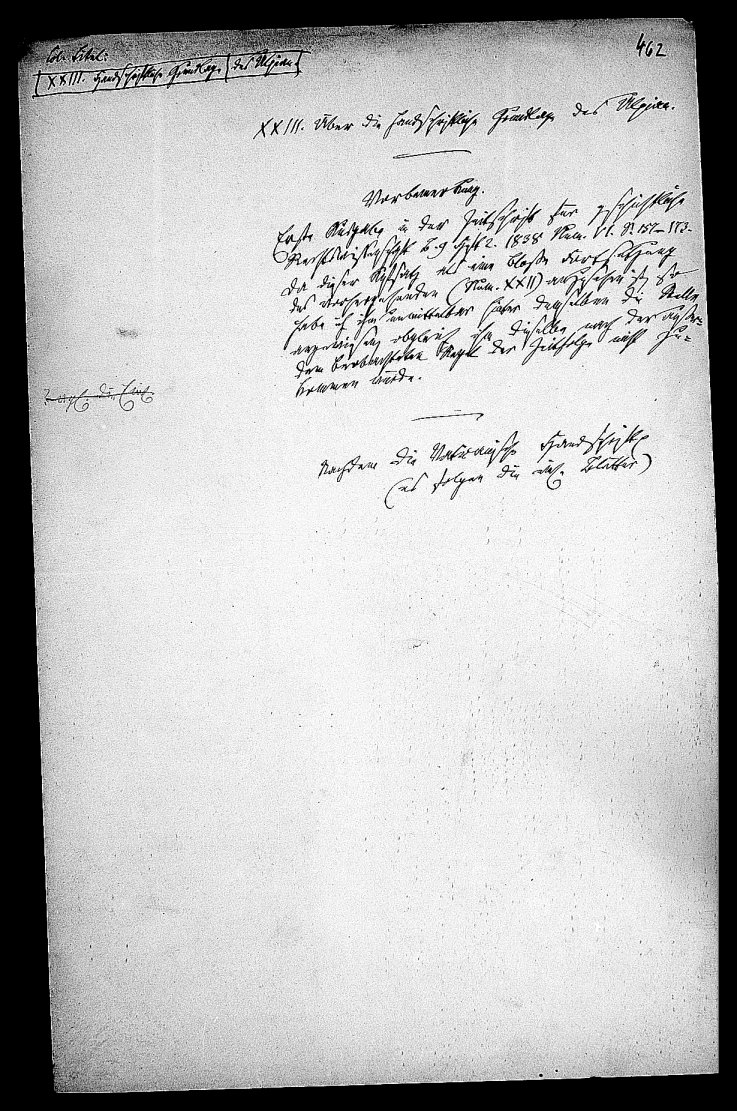 Col. Titel:
462
XXIII. Handschriftliche Grundlage des Ulpian
XXIII. Über die handschriftliche Grundlage des Ulpian.
Vorbemerkung.
Erste Ausgabe in der Zeitschrift für geschichtliche
Rechtswissenschaft B. 9 Heft 2. 1838 Num. VI. S. 157–173.
Da dieser Aufsatz als eine bloße Fortsetzung
des vorhergehenden (Num. XXII) anzusehen ist, so
habe ich ihm unmittelbar hinter demselben die Stelle
angewiesen, obgleich ihm dieselbe nach der außer-
dem beobachteten Regel der Zeitfolge nicht zu-
kommen würde.
die
Nachdem die Vaticanische Handschrift
(es folgen die Blätter)